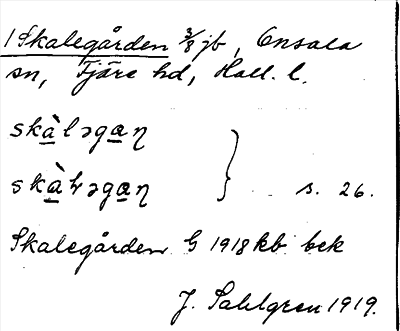 1 Skalegården 3/8 jb, Onsala
sn, Fjäre hd, Hall. l.
skàləgaŋ
skàɫəgaŋ } s. 26.
Skalegården G 1918 kb bek
J. Sahlgren 1919.